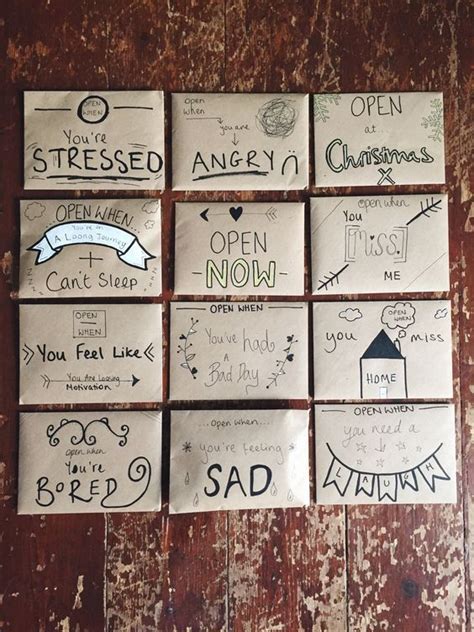 OPEN
WHEN
You're
STRESSED
open
when
you are
ANGRY
OPEN
at
Christmas
X
OPEN WHEN...
You're on
A Looong Journey
+
Can't Sleep
OPEN
NOW
open when
You
[Miss]
ME
OPEN
WHEN
You Feel Like
You Are Loosing
Motivation
OPEN WHEN
You've had
a
Bad Day
OPEN
WHEN
you miss
HOME
open when
You're
BORED
...open when...
you're feeling
SAD
OPEN WHEN
you need a
LAUGH